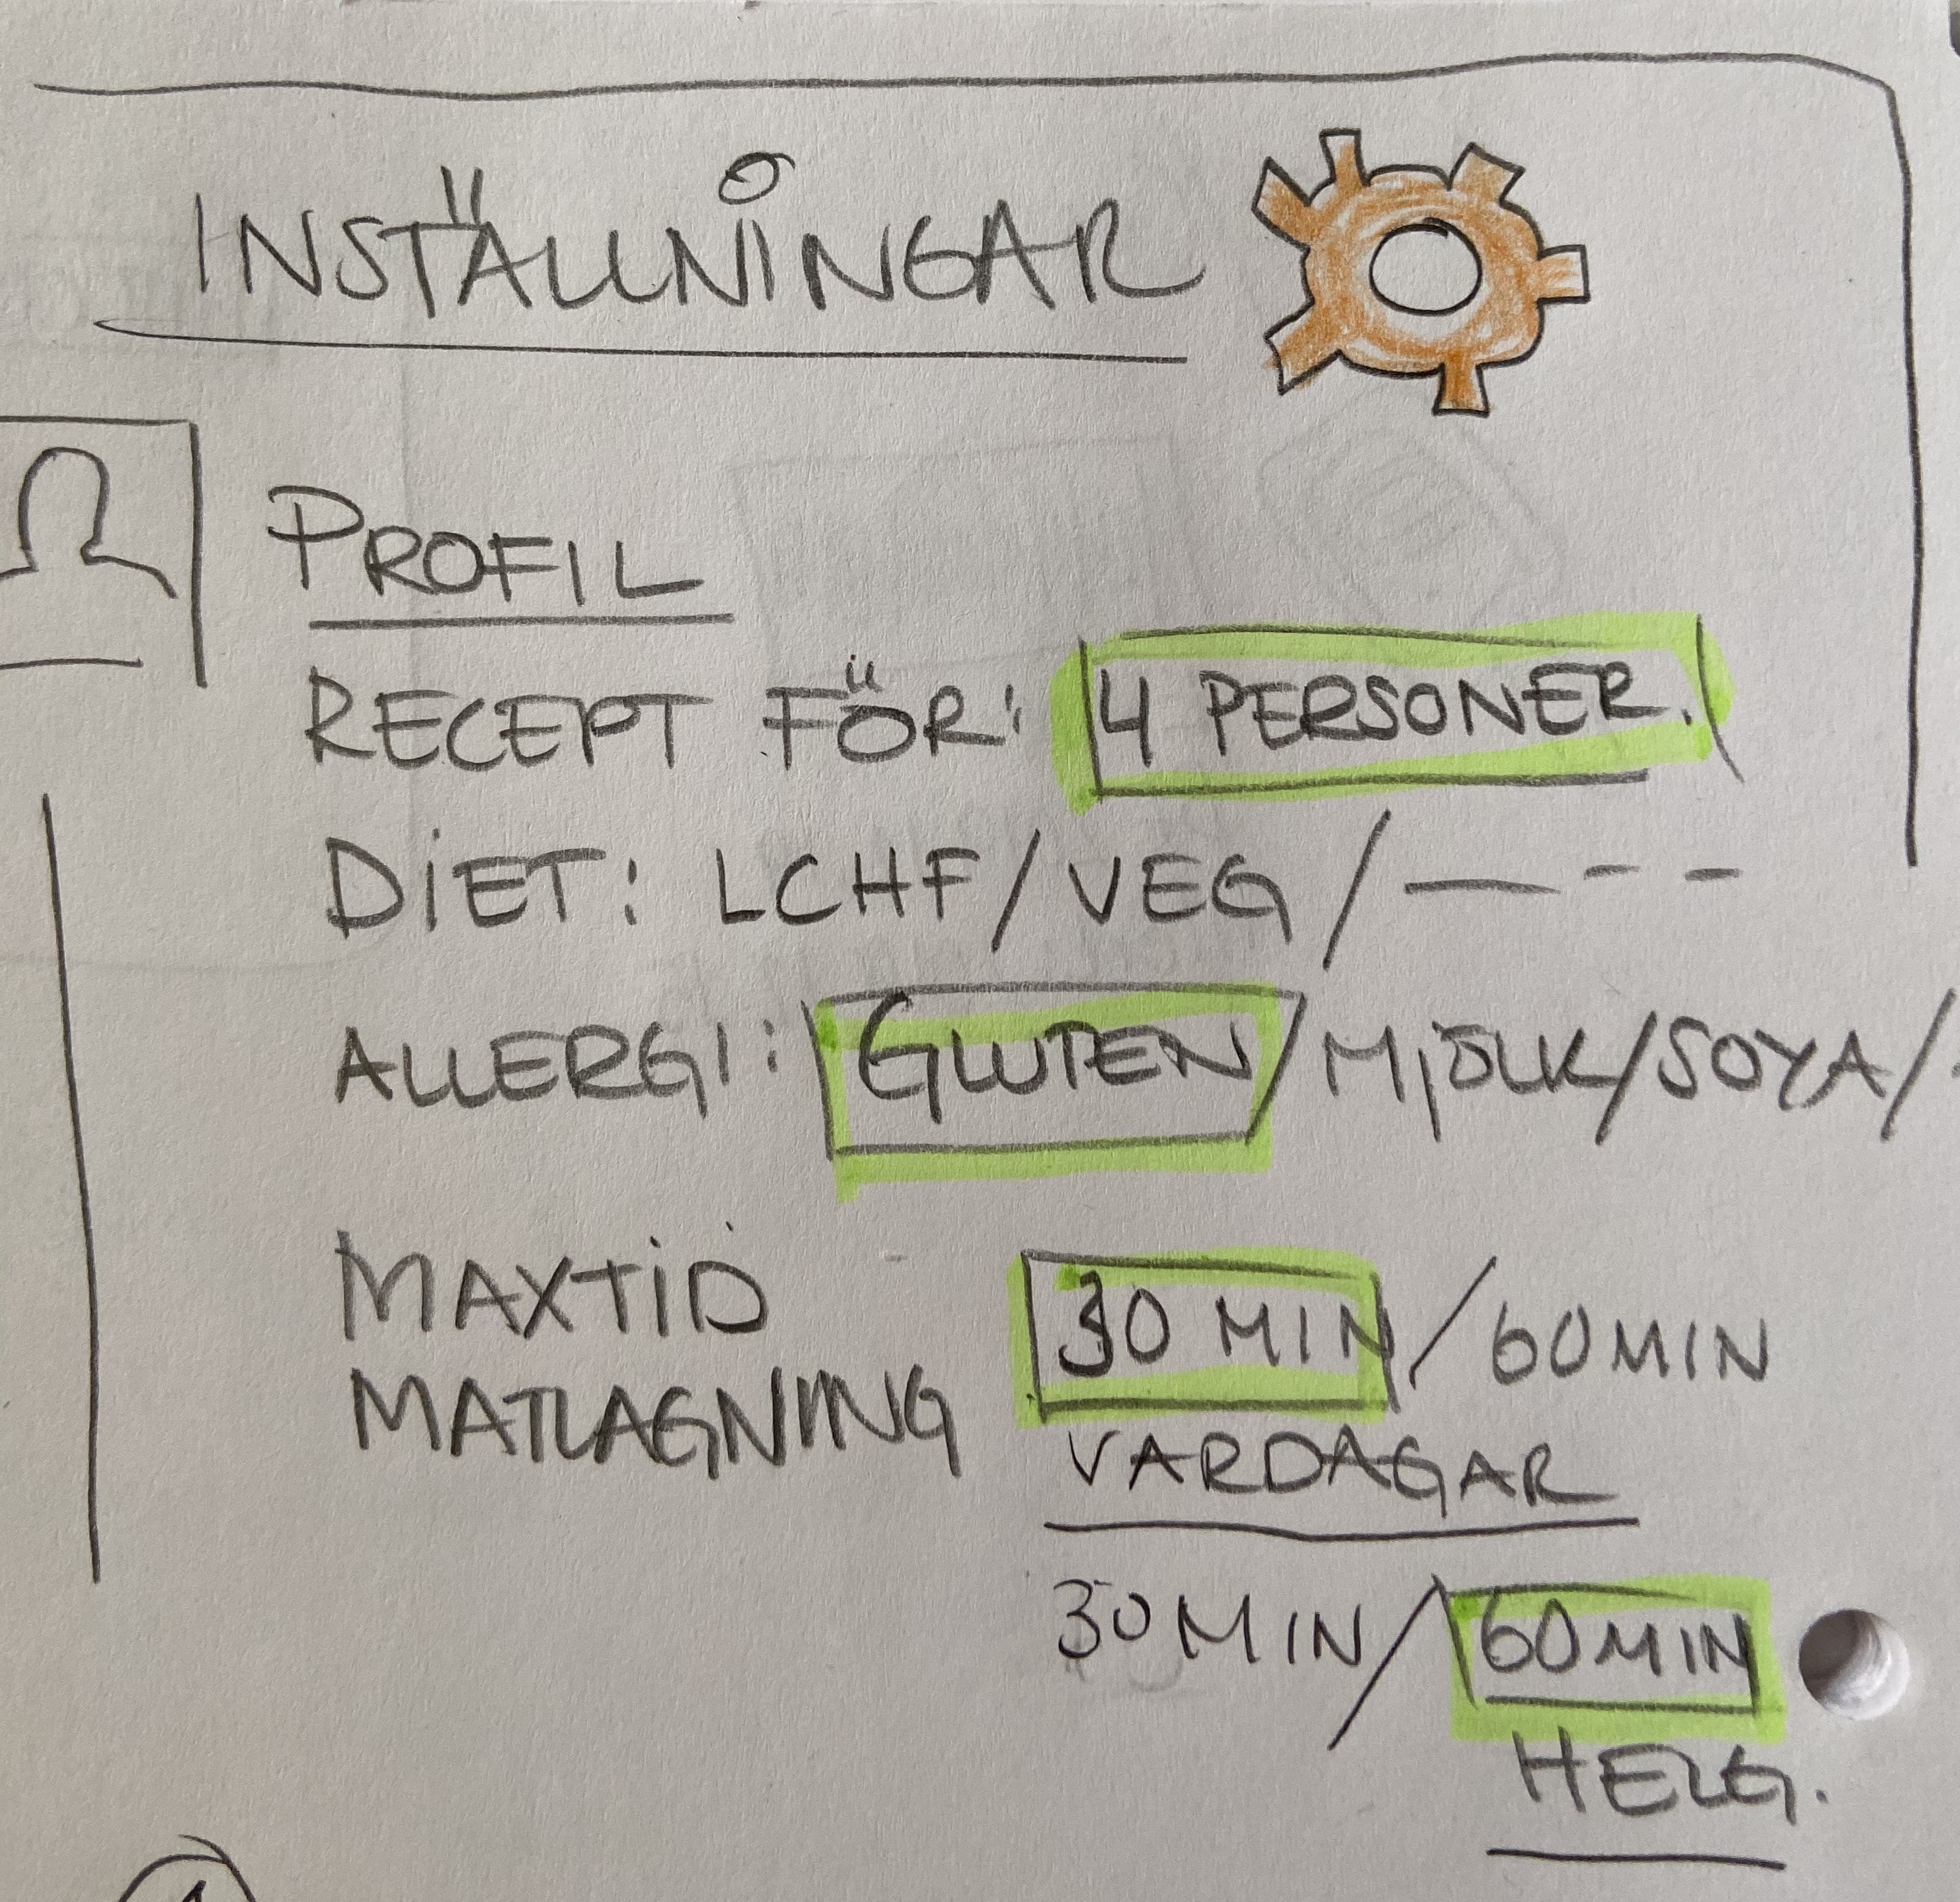 INSTÄLLNINGAR
PROFIL
RECEPT FÖR: 4 PERSONER.
DIET: LCHF/VEG/— - -
ALLERGI: GLUTEN/MJÖLK/SOYA/
MAXTID 30 MIN/60MIN
MATLAGNING VARDAGAR
30MIN/60MIN
HELG.